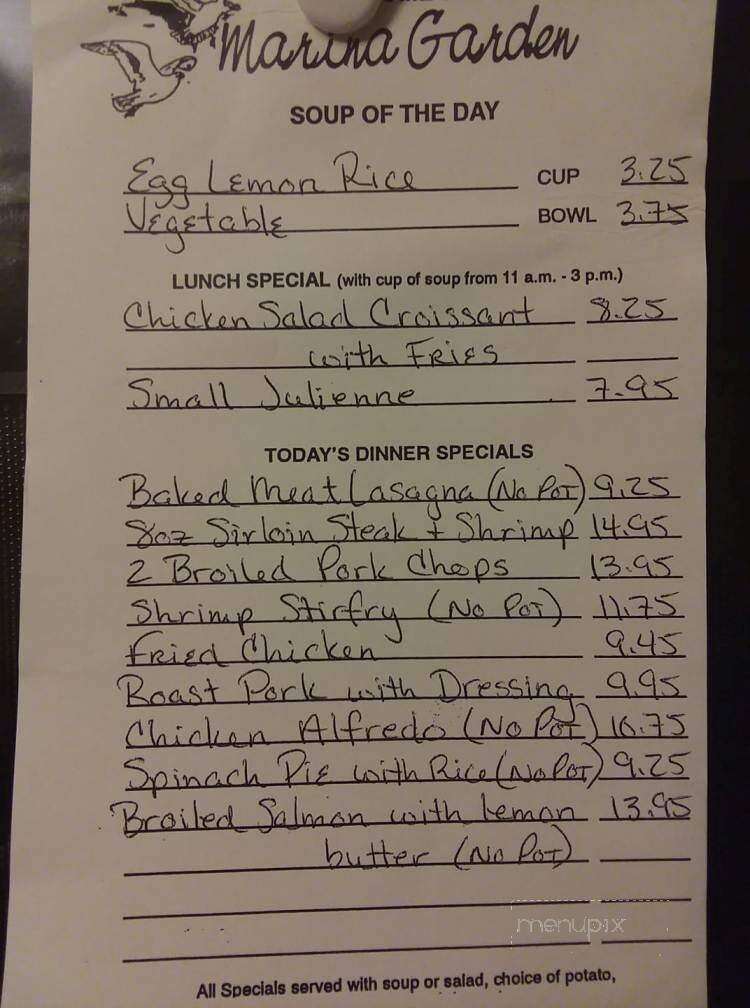 Marina Garden
SOUP OF THE DAY
Egg Lemon Rice CUP 3.25
Vegetable BOWL 3.75
LUNCH SPECIAL (with cup of soup from 11 a.m. - 3 p.m.)
Chicken Salad Croissant 8.25
with Fries
Small Julienne 7.95
TODAY'S DINNER SPECIALS
Baked Meat Lasagna (No Pot) 9.25
8oz Sirloin Steak + Shrimp 14.95
2 Broiled Pork Chops 13.95
Shrimp Stirfry (No Pot) 11.75
Fried Chicken 9.45
Roast Pork with Dressing 9.95
Chicken Alfredo (No Pot) 10.75
Spinach Pie with Rice (No Pot) 9.25
Broiled Salmon with lemon 13.95
butter (No Pot)
menupix
All Specials served with soup or salad, choice of potato,